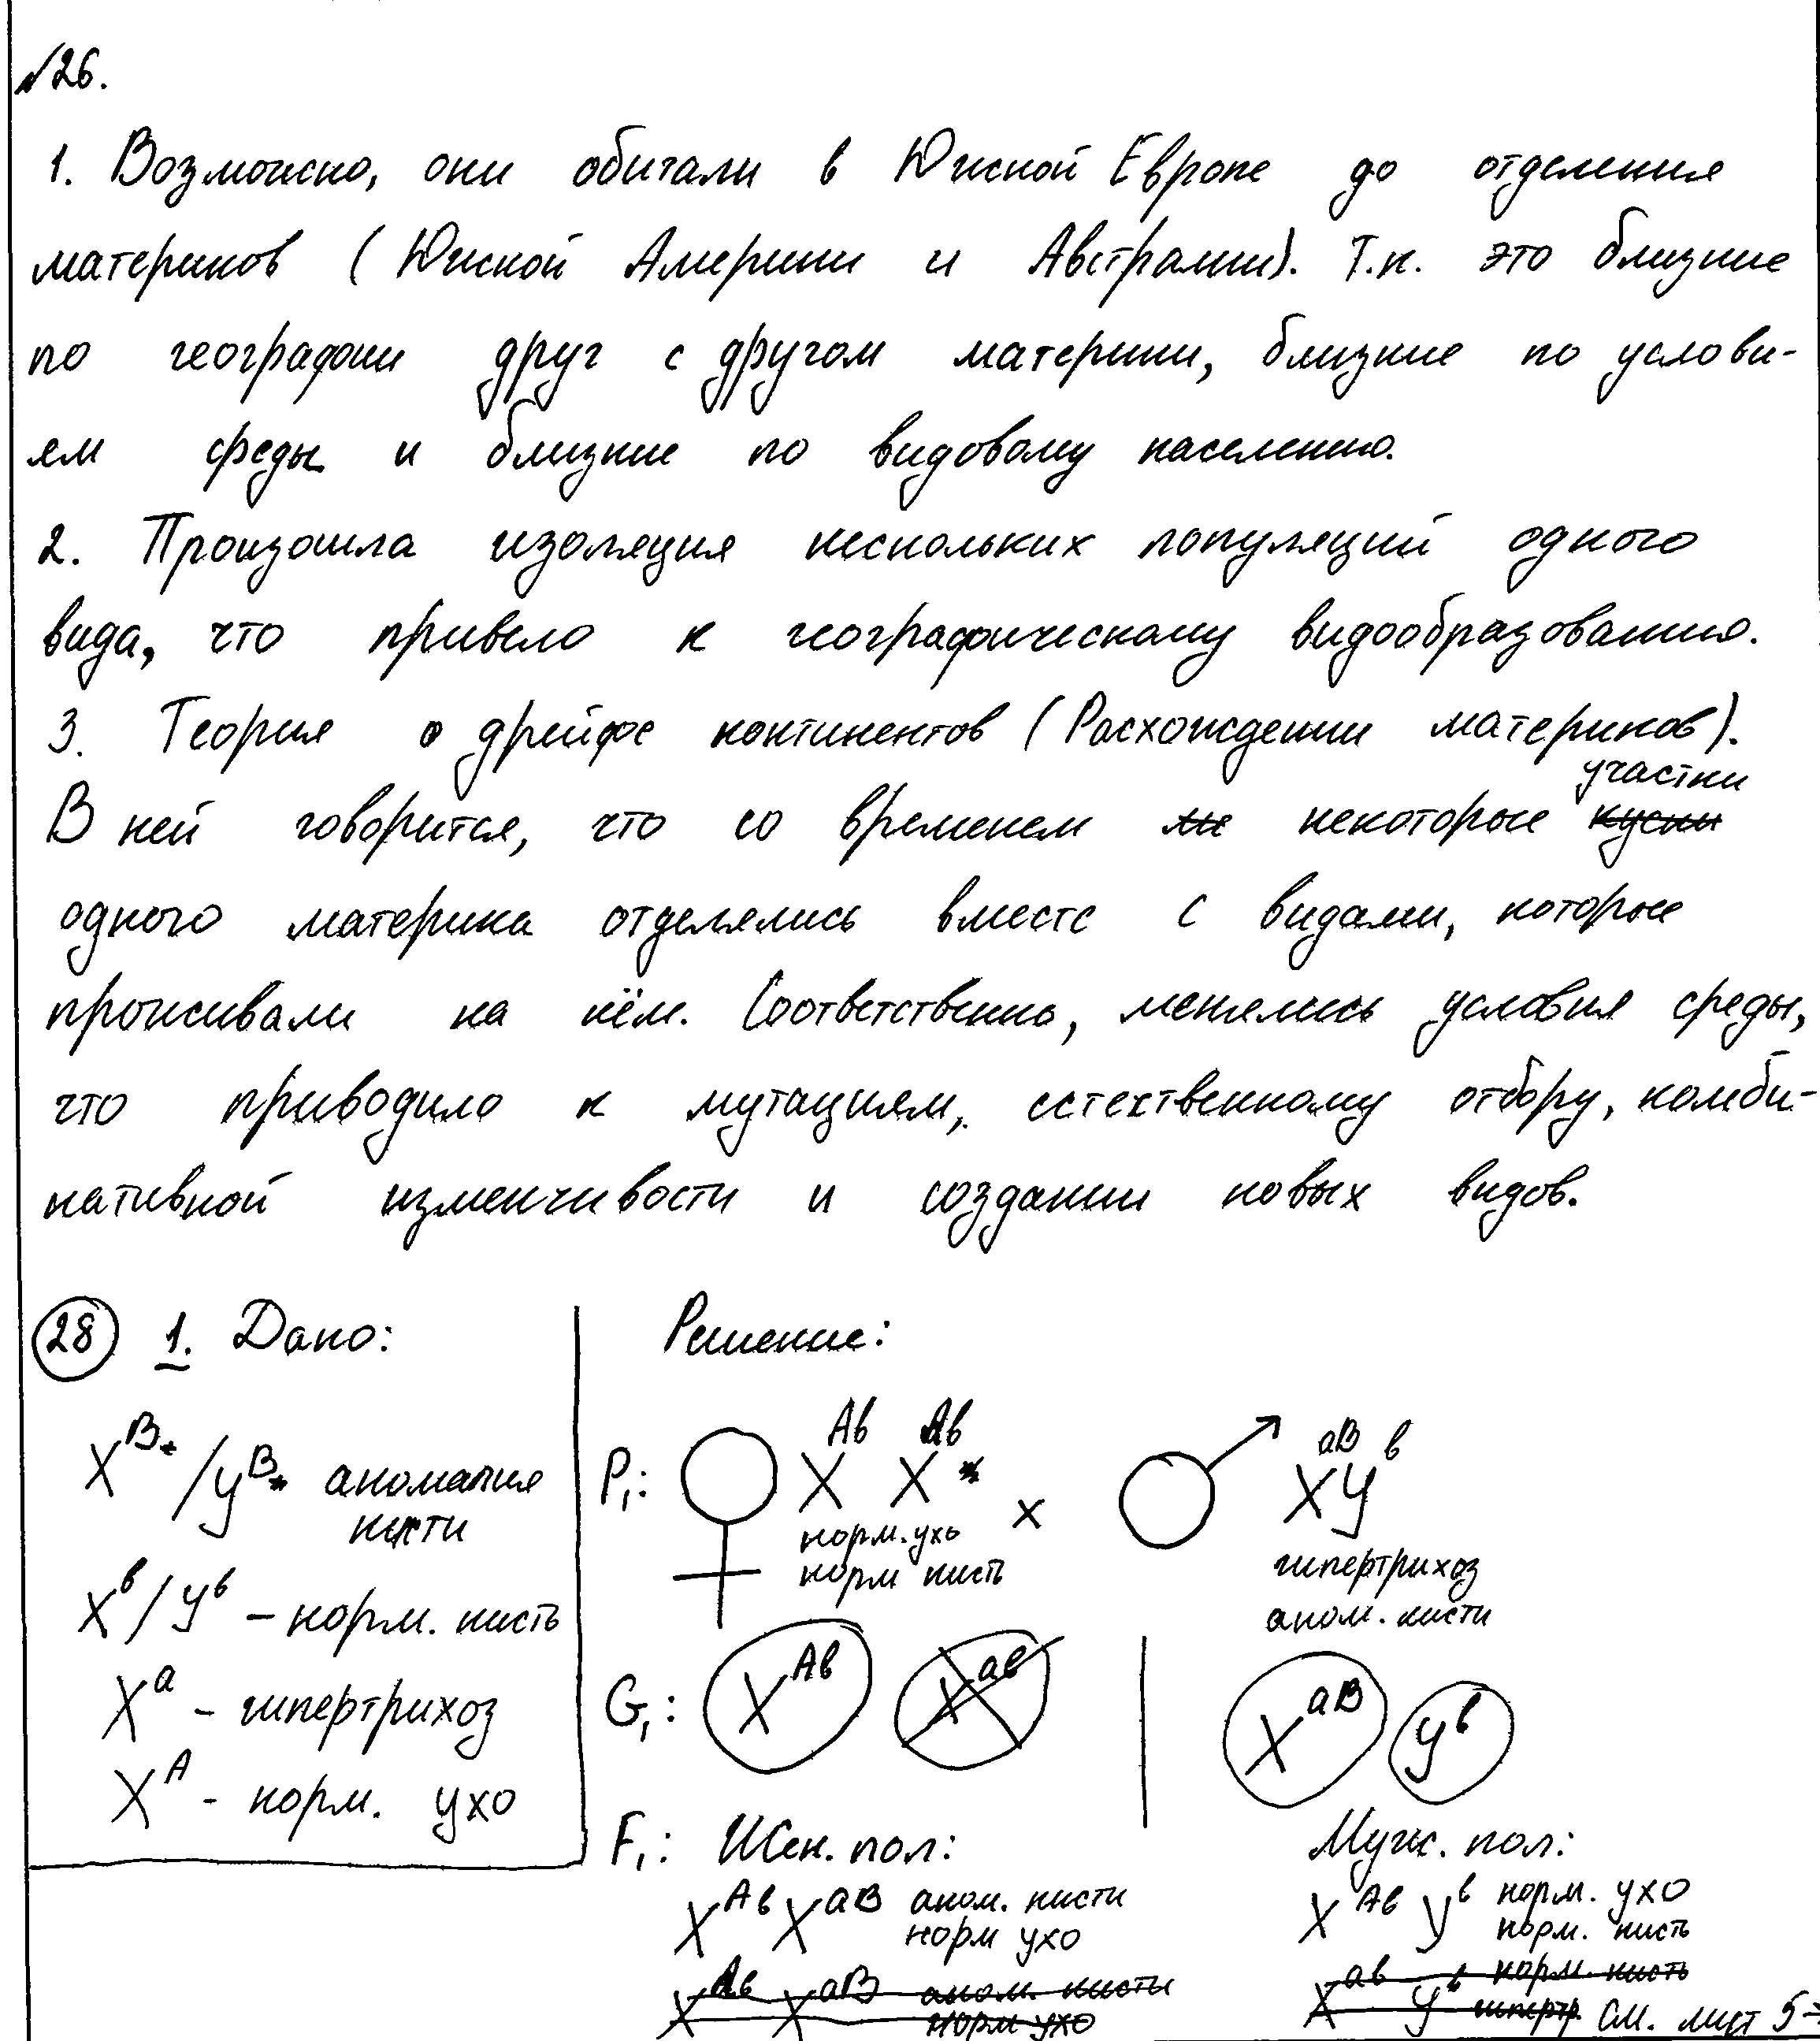 №26.
1. Возможно, они обитали в Южной Европе до отделения
материков (Южной Америки и Австралии). Т.к. это близкие
по географии друг с другом материки, близкие по услови-
ем среды и близкие по видовому населению.
2. Произошла изоляция нескольких популяций одного
вида, что привело к географическому видообразованию.
3. Теория о дрейфе континентов (Расхождении материков).
участки
В ней говорится, что со временем некоторые куски
одного материка отделялись вместе с видами, которые
проживали на нём. Соответственно, менялись условия среды,
что приводило к мутациям, естественному отбору, комби-
нативной изменчивости и создании новых видов.
28 1. Дано:
X^B / У^B аномалия
кисти
X^в / У^в – норм. кисть
X^а – гипертрихоз
X^А – норм. ухо
Решение:
P₁: ♀ X^Ав X^Ав x ♂ X^аВ У^в
норм. ухо гипертрихоз
норм кисть аном. кисти
G₁: X^Ав X^ав X^аВ У^в
F₁: Жен. пол: Муж. пол:
X^Ав X^аВ аном. кисти X^Ав У^в норм. ухо
норм ухо норм. кисть
X^Ав X^аВ аном. кисти X^ав У^в норм. кисть
норм ухо гипертр. См. лист 5→